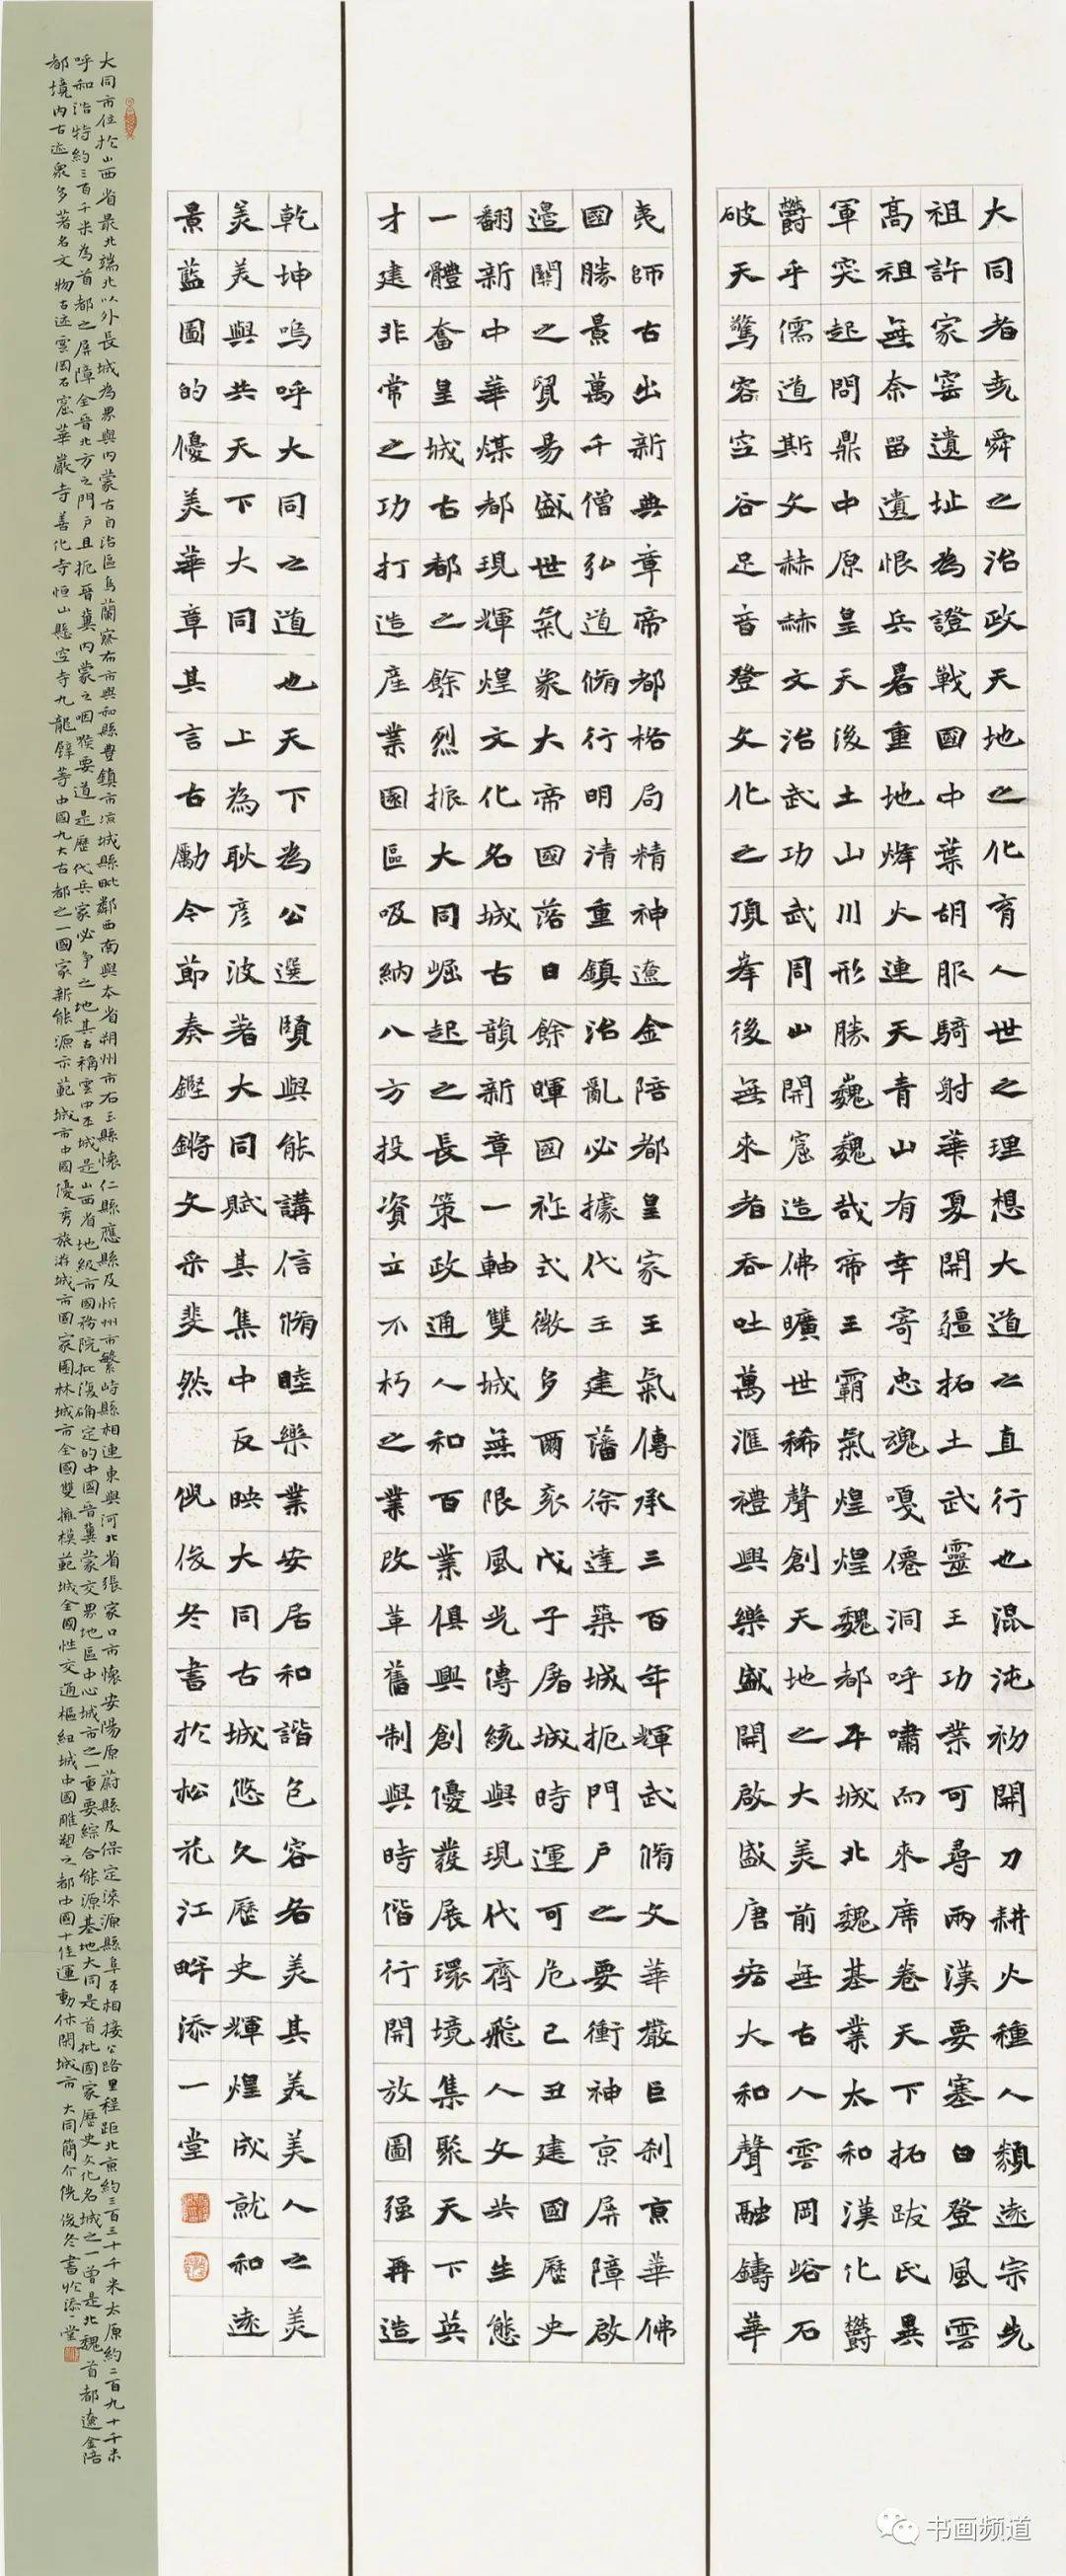 大同者堯舜之治政天地之化育人世之理想大道之直行也混沌初開刀耕火種人類遠宗先
祖許家窑遺址為證戰國中葉胡服騎射華夏開疆拓土武靈王功業可尋兩漢要塞白登風雲
高祖無奈留遺恨兵畧重地烽火連天青山有幸寄忠魂嘎僊洞呼嘯而來席卷天下拓跋氏異
軍突起問鼎中原皇天後土山川形勝巍巍哉帝王霸氣煌煌魏都平城北魏基業太和漢化欝
欝乎儒道斯文赫赫文治武功武同山開窟造佛曠世稀聲創天地之大美前無古人雲岡峪石
破天驚容空谷足音登文化之頂峯後無來者吞吐萬滙禮興樂盛開啟盛唐宏大和聲融鑄華
夷師古出新典章帝都格局精神遼金陪都皇家王氣傳承三百年輝武脩文華嚴巨刹京華佛
國勝景萬千僧弘道脩行明清重鎮治亂必據代王建藩徐達築城扼門户之要衝神京屏障啟
邊關之貿易盛世氣象大帝國落日餘暉國祚式微多爾衮戊子屠城時運可危己丑建國歷史
翻新中華煤都現輝煌文化名城古韻新章一軸雙城無限風光傳統與現代齊飛人文共生態
一體奮皇城古都之餘烈振大同崛起之長策政通人和百業俱興創優發展環境集聚天下英
才建非常之功打造産業園區吸納八方投資立不朽之業改革舊制與時偕行開放圖强再造
乾坤嗚呼大同之道也天下為公選賢與能講信脩睦樂業安居和諧包容各美其美美人之美
美美與共天下大同 上為耿彦波著大同賦其集中反映大同古城悠久歷史輝煌成就和遠
景藍圖的優美華章其言古勵今節奏鏗鏘文采斐然 倪俊冬書於松花江畔添一堂
大同市位於山西省最北端北以外長城為界與内蒙古自治區烏蘭察布市興和縣豐鎮市凉城縣毗鄰西南與本省朔州市右玉縣懷仁縣應縣及忻州市繁峙縣相連東與河北省張家口市懷安陽原蔚縣及保定淶源縣阜平相接公路里程距北京約三百三十千米太原約二百九十千米
呼和浩特約三百千米為首都之屏障全晋北方之門户且扼晋冀内蒙之咽喉要道是歷代兵家必争之地其古稱雲中平城是山西省地級市國務院批復确定的中國晋冀蒙交界地區中心城市之一重要綜合能源基地大同是首批國家歷史文化名城之一曾是北魏首都遼金陪
都境内古迹衆多著名文物古迹雲岡石窟華嚴寺善化寺恒山懸空寺九龍壁等中國九大古都之一國家新能源示範城市中國優秀旅游城市國家園林城市全國雙擁模範城全國性交通樞紐城中國雕塑之都中國十佳運動休閑城市 大同簡介倪俊冬書於添一堂
书画频道